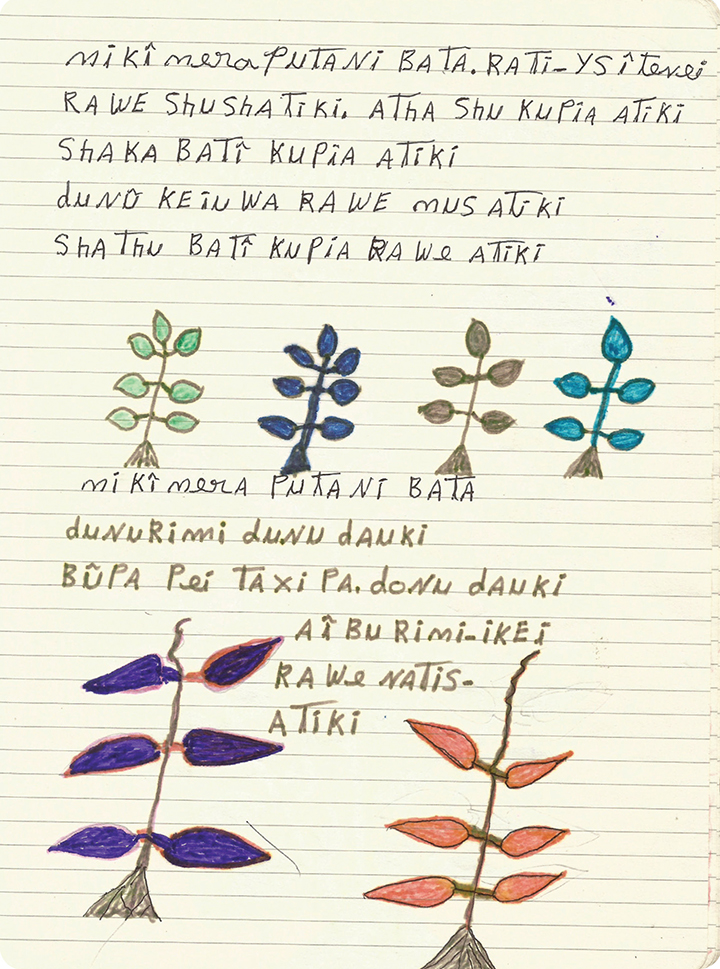 mikî mera PUTANi BATA. RATi-YSî tevei
RAWE ShUShATiKi. ATHA ShU KUPiA ATiKi
ShAKA BATî KUPiA ATiKi
dUNÛ KEiUWA RAWE MUSATiKi
ShAThU BATî KUPiA RAWe ATiKi
mikî merA PUTANi BATA
dUNURimi dUNU dAUKi
BÛPA Pei TAXi PA. dONU dAUKi
AîBU Rimi-iKEi
RAWe NATiS-
ATiKi